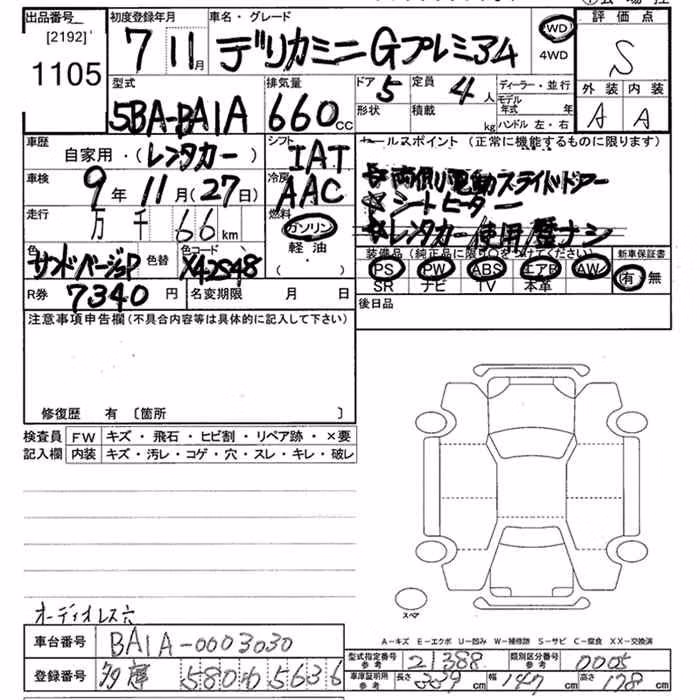 出品番号 初度登録年月 車名・グレード 評価点
[2192] 7 11月 デリカミニ Gプレミアム 2WD 4WD S
1105 型式 排気量 ドア 5 定員 4人 ディーラー・並行 外装 内装
5BA-BA1A 660cc 形状 積載 kg モデル年式 年 ハンドル 左・右 A A
車歴 自家用・(レンタカー) シフト IAT セールスポイント (正常に機能するものに限ります)
車検 9年11月(27日) 冷房 AAC ☆両側電動スライドドアー
☆シートヒーター
走行 万 千 66km 燃料 ガソリン ☆レンタカー使用歴ナシ
色 サンドベージュP 色替 色コード X42S48 軽油 ・( )
装備品(純正品に限り○をつけてください) 新車保証書
PS PW ABS エアB AW 有 無
SR ナビ TV 本革
R券 7340円 名変期限 月 日 後日品
注意事項申告欄(不具合内容等は具体的に記入して下さい)
修復歴 有 〔箇所 〕
検査員 FW キズ・飛石・ヒビ割・リペア跡・×要
記入欄 内装 キズ・汚レ・コゲ・穴・スレ・キレ・破レ
スペア
オーディオレス
A-キズ E-エクボ U-凹み W-補修跡 S-サビ C-腐食 XX-交換済
車台番号 BA1A-0003030
型式指定番号 参考 21388 類別区分番号 参考 0005
登録番号 580 5636
車庫証明用 参考 長さ 339cm 幅 147cm 高さ 178cm